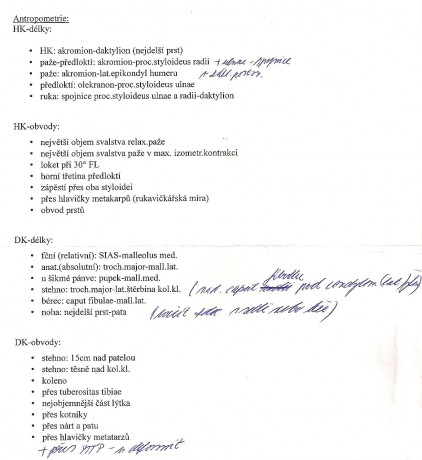 Antropometrie:
HK-délky:
• HK: akromion-daktylion (nejdelší prst)
• paže-předloktí: akromion-proc.styloideus radii + ulnae - spojnice
• paže: akromion-lat.epikondyl humeru
• předloktí: olekranon-proc.styloideus ulnae
• ruka: spojnice proc.styloideus ulnae a radii-daktylion
HK-obvody:
• největší objem svalstva relax.paže
• největší objem svalstva paže v max. izometr.kontrakci
• loket při 30° FL
• horní třetina předloktí
• zápěstí přes oba styloidei
• přes hlavičky metakarpů (rukavičkářská míra)
• obvod prstů
DK-délky:
• fční (relativní): SIAS-malleolus med.
• anat.(absolutní): troch.major-mall.lat.
• u šikmé pánve: pupek-mall.med.
• stehno: troch.major-lat.štěrbina kol.kl. pod condylem
• bérec: caput fibulae-mall.lat.
• noha: nejdelší prst-pata nebo
DK-obvody:
• stehno: 15cm nad patelou
• stehno: těsně nad kol.kl.
• koleno
• přes tuberositas tibiae
• nejobjemnější část lýtka
• přes kotníky
• přes nárt a patu
• přes hlavičky metatarzů
+ přes MTP - u deformit